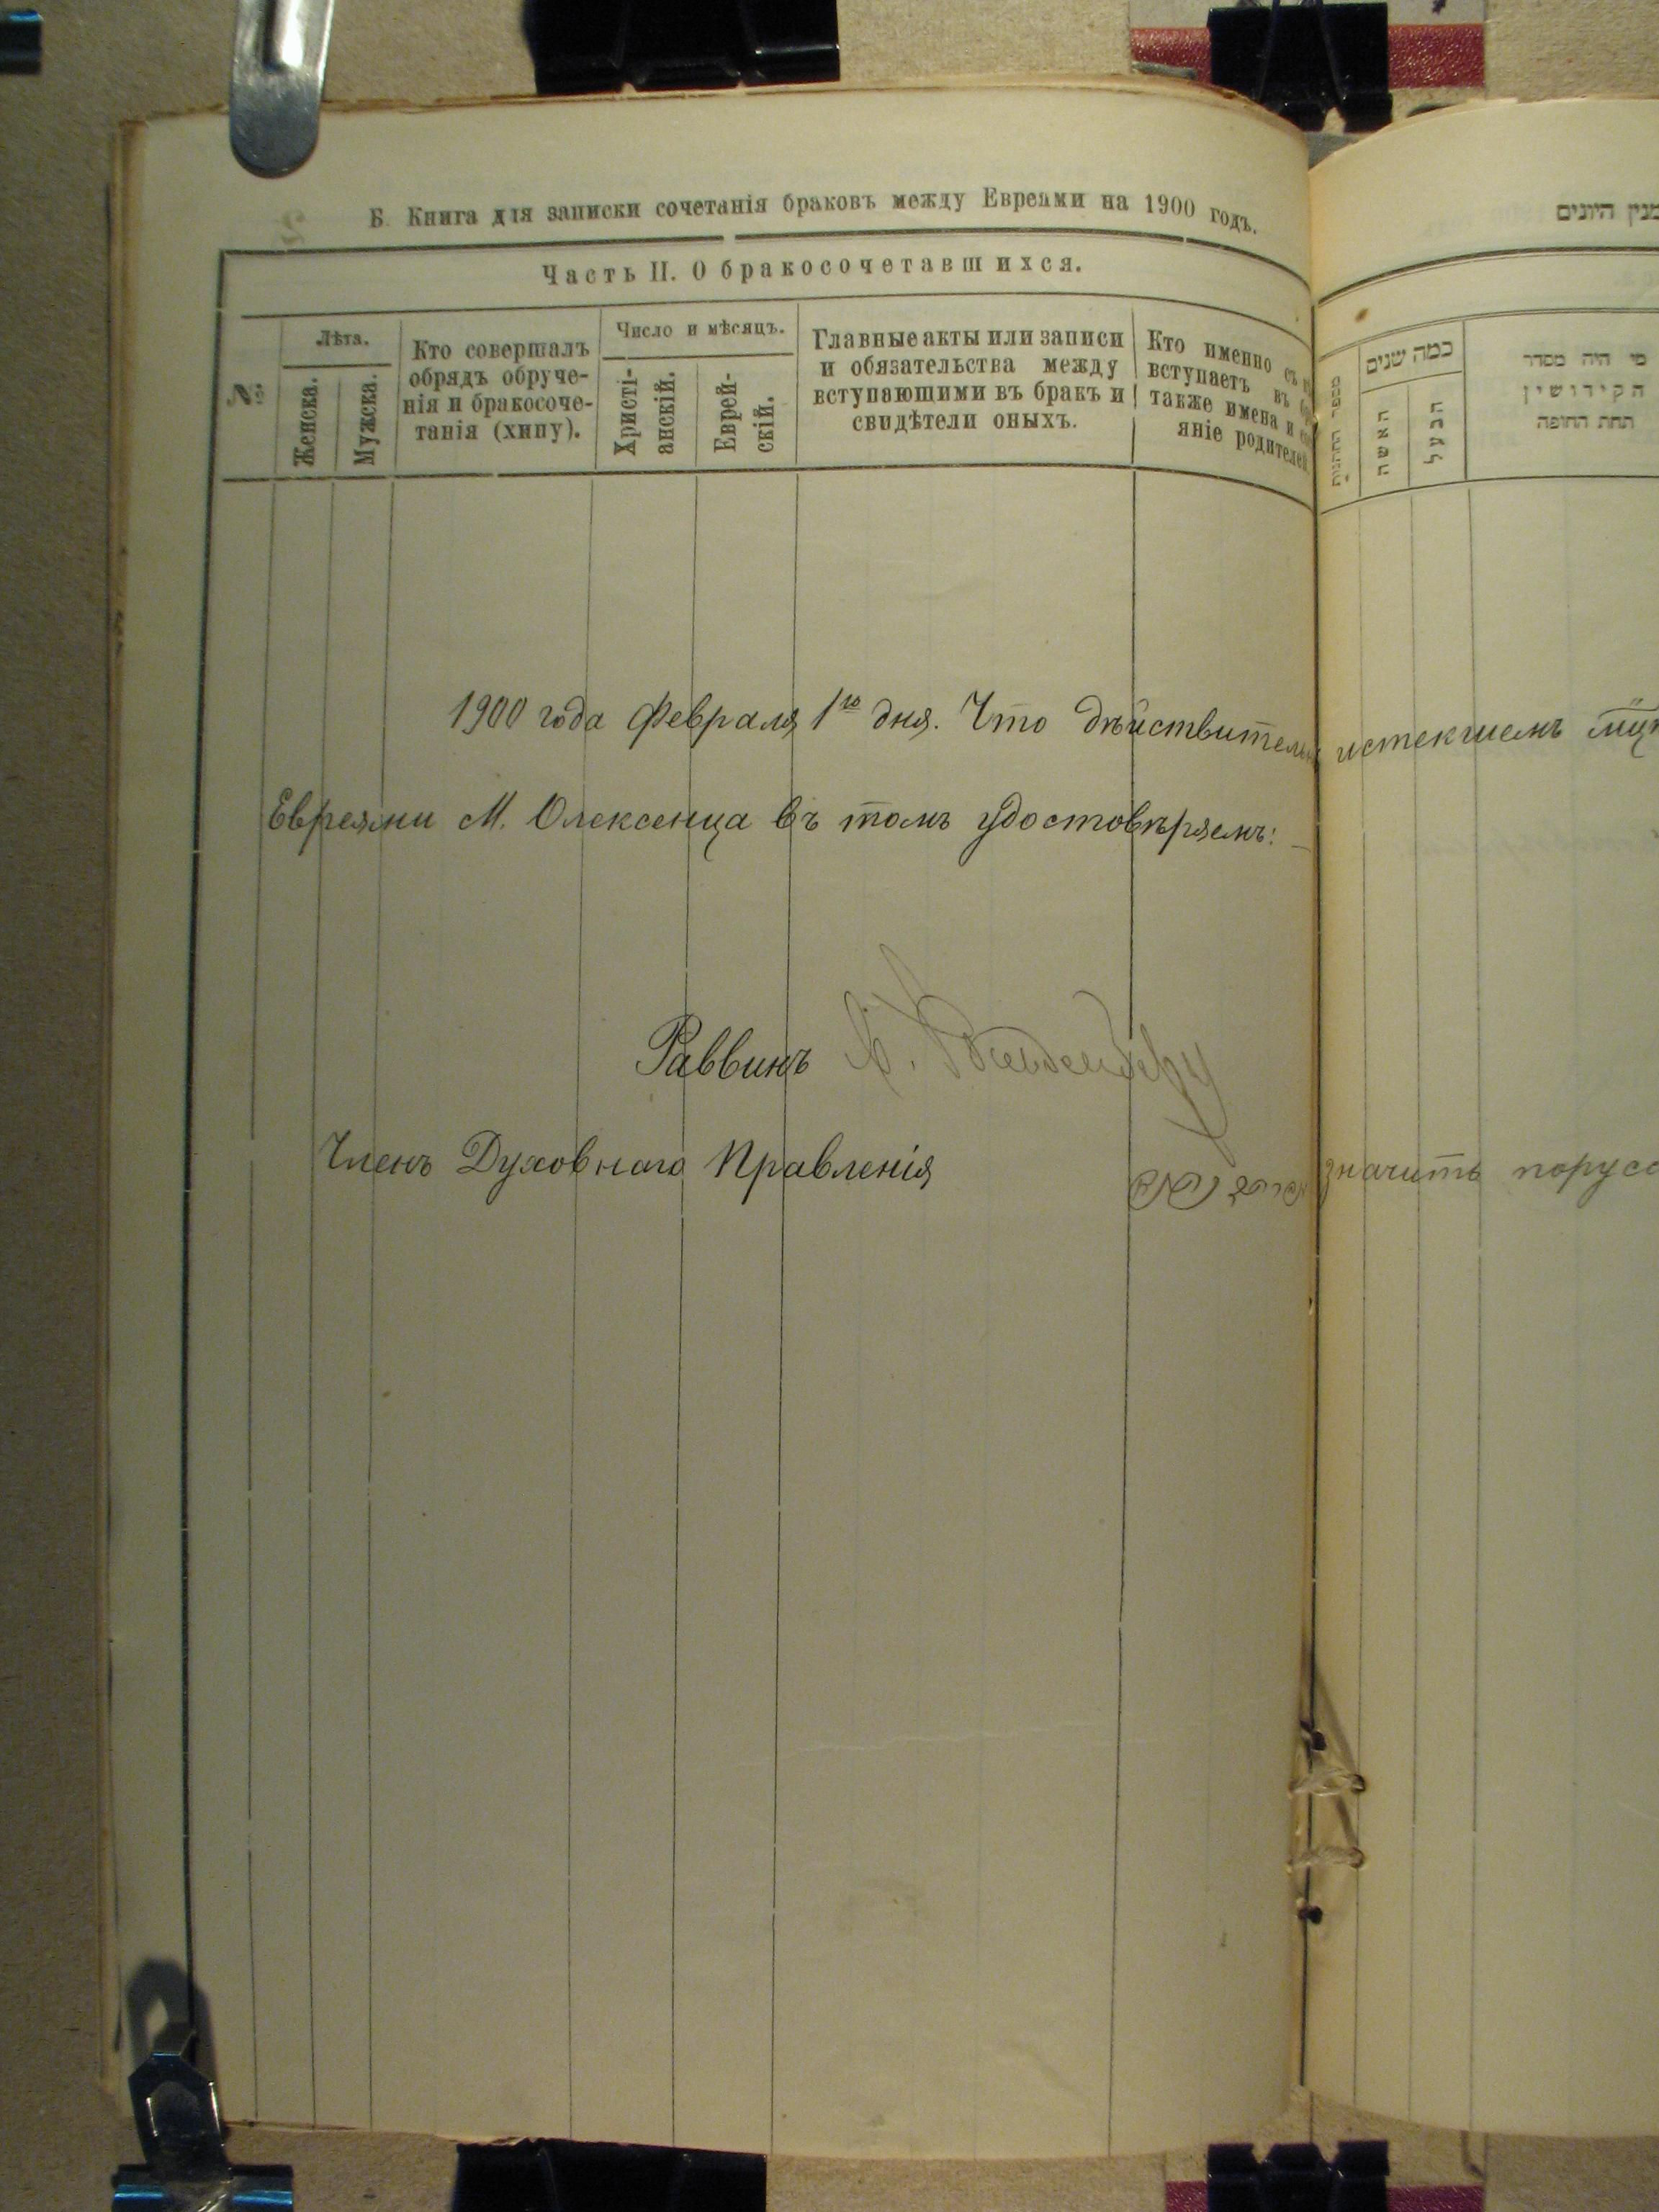 Б. Книга для записки сочетанія браковъ между Евреями на 1900 годъ.
Часть II. О бракосочетавшихся.
№
Лѣта.
Женска.
Мужска.
Кто совершалъ
обрядъ обруче-
нія и бракосоче-
танія (хипу).
Число и мѣсяцъ.
Христі-
анскій.
Еврей-
скій.
Главные акты или записи
и обязательства между
вступающими въ бракъ и
свидѣтели оныхъ.
Кто именно съ
вступаетъ въ
также имена и
яніе родителей
1900 года Февраля 1го дня. Что дѣйствительно
Евреями М. Олексенца въ томъ удостовѣряемъ:
Раввинъ
Членъ Духовнаго Правленія
היונים
כמה שנים
מספר
האשה
הבעל
מי היה מסדר
הקידושין
תחת החופה
истекшемъ
значитъ порусс